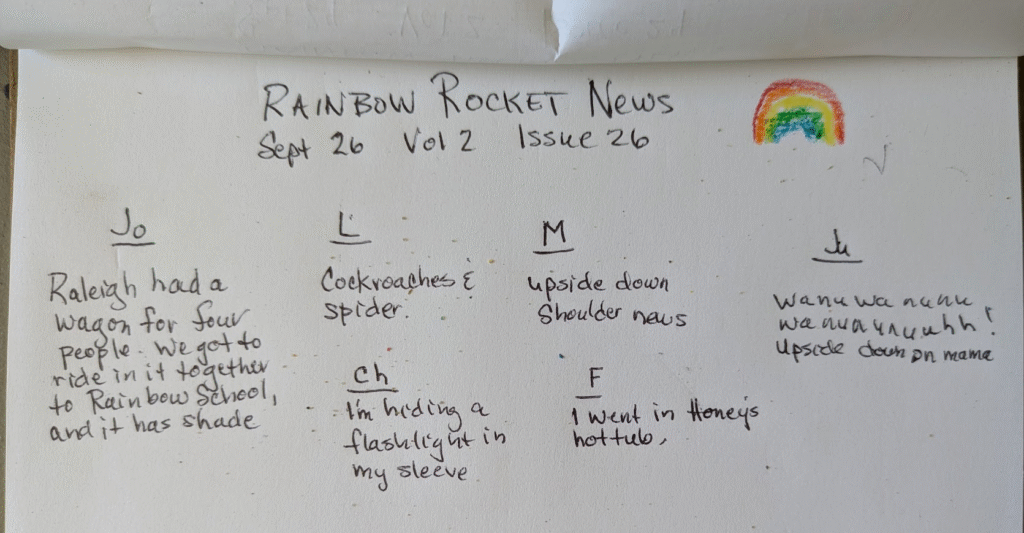 RAINBOW ROCKET NEWS
Sept 26 Vol 2 Issue 26
Jo
Raleigh had a
wagon for four
people. We got to
ride in it together
to Rainbow School,
and it has shade
L
Cockroaches &
spider.
M
upside down
Shoulder news
Ju
wanuwanunu
wanuanunuuhh!
Upside down on mama
Ch
I'm hiding a
flashlight in
my sleeve
F
I went in Honey's
hot tub.